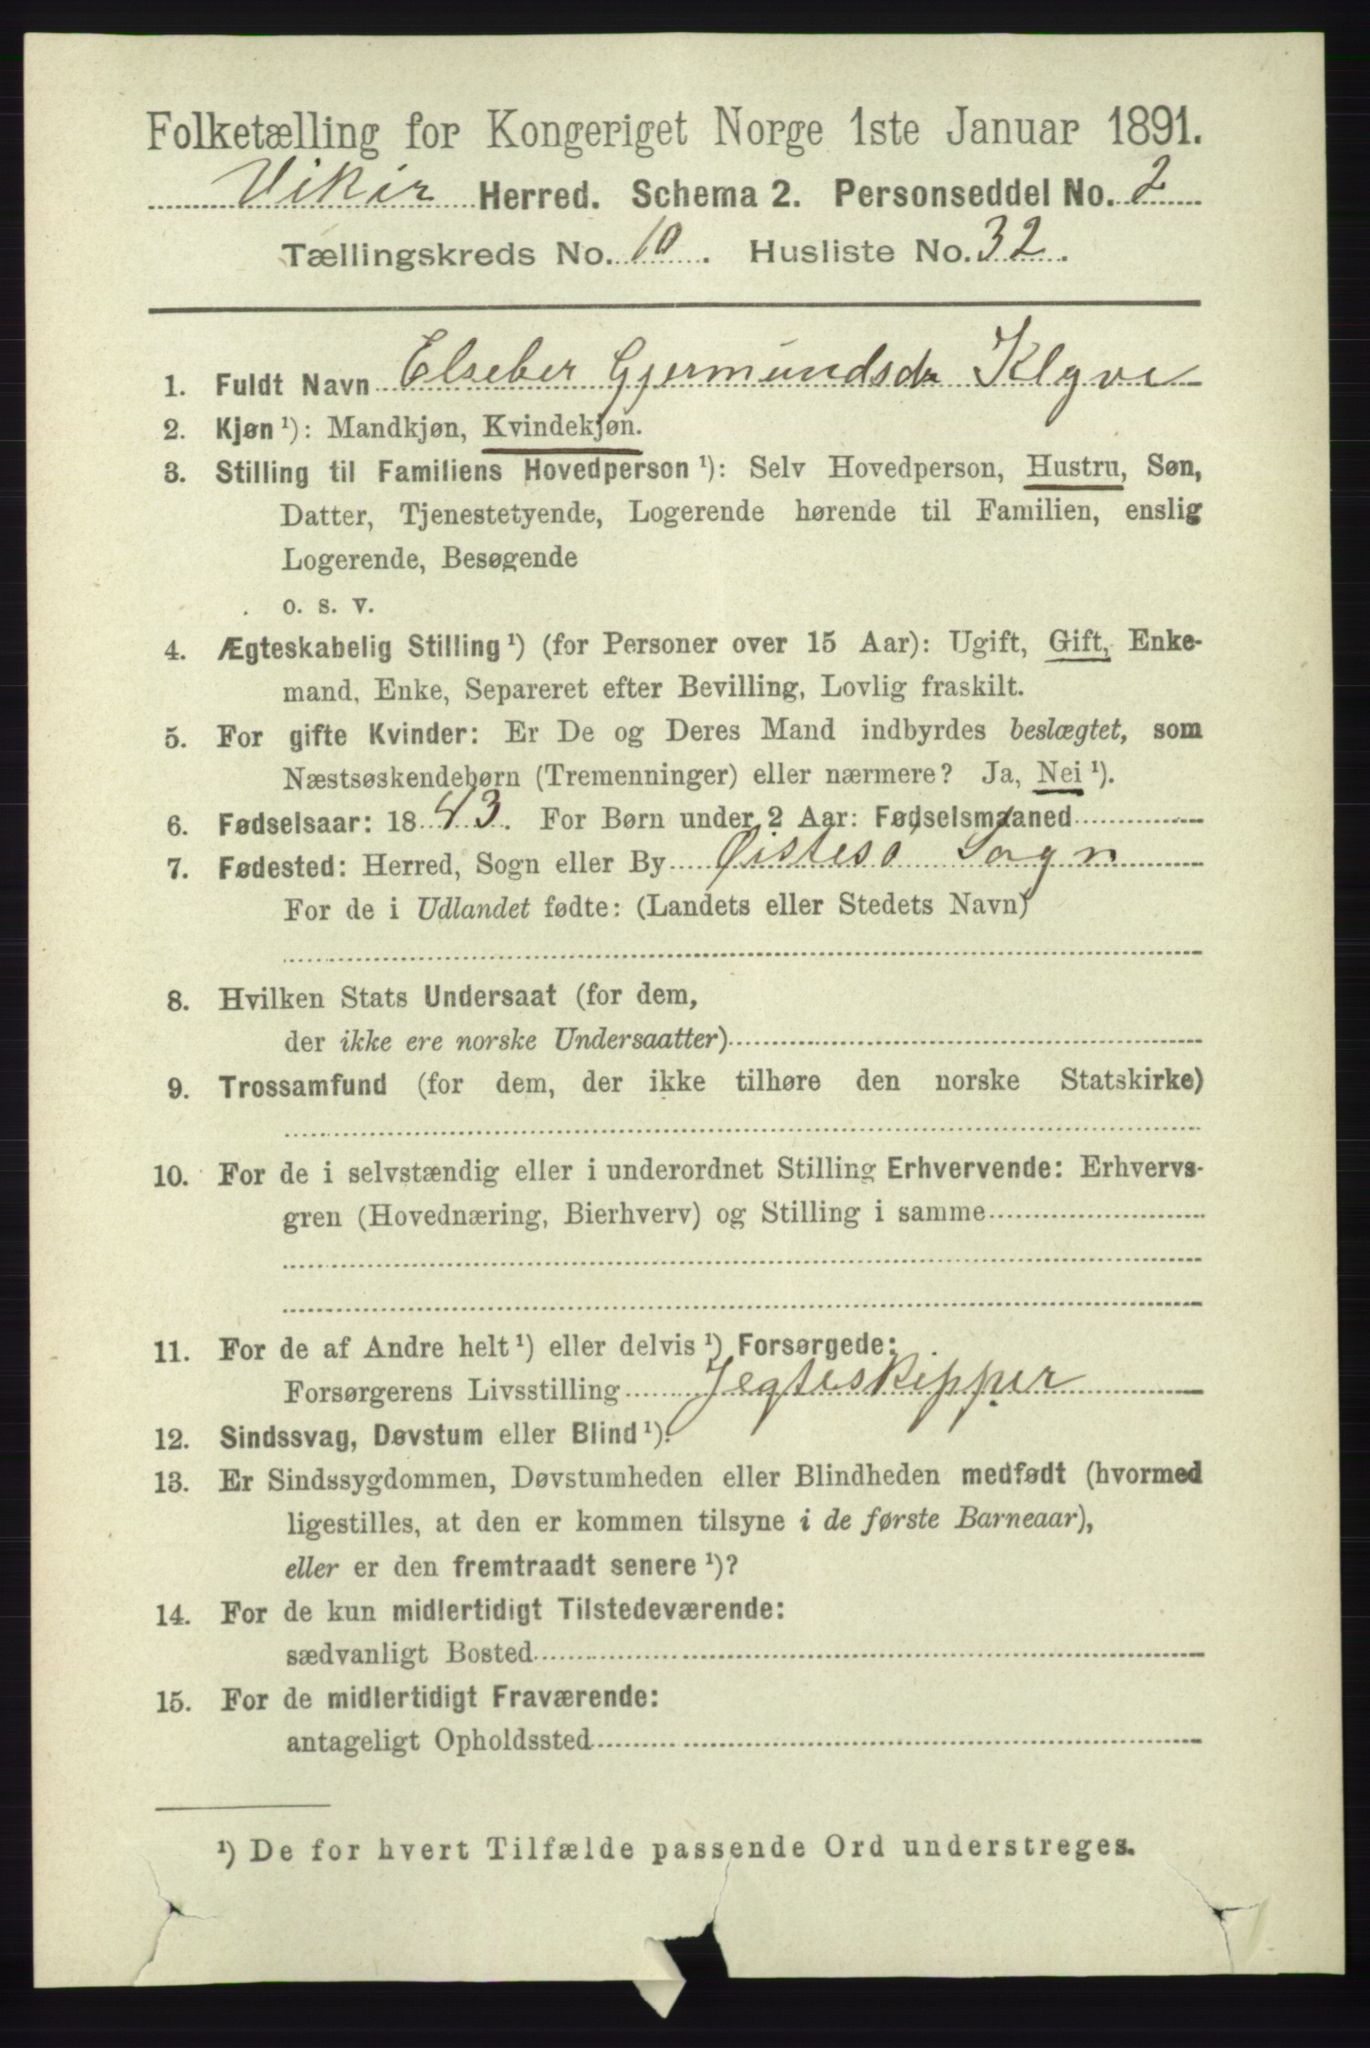 Folketælling for Kongeriget Norge 1ste Januar 1891.
Vikør Herred. Schema 2. Personseddel No. 2
Tællingskreds No. 10. Husliste No. 32.
1. Fuldt Navn Elseber Gjermundsdr Klyve
2. Kjøn ¹): Mandkjøn, Kvindekjøn.
3. Stilling til Familiens Hovedperson ¹): Selv Hovedperson, Hustru, Søn,
Datter, Tjenestetyende, Logerende hørende til Familien, enslig
Logerende, Besøgende
o. s. v.
4. Ægteskabelig Stilling ¹) (for Personer over 15 Aar): Ugift, Gift, Enke-
mand, Enke, Separeret efter Bevilling, Lovlig fraskilt.
5. For gifte Kvinder: Er De og Deres Mand indbyrdes beslægtet, som
Næstsøskendebørn (Tremenninger) eller nærmere? Ja, Nei ¹).
6. Fødselsaar: 1843. For Børn under 2 Aar: Fødselsmaaned
7. Fødested: Herred, Sogn eller By Øistesø Sogn
For de i Udlandet fødte: (Landets eller Stedets Navn)
8. Hvilken Stats Undersaat (for dem,
der ikke ere norske Undersaatter)
9. Trossamfund (for dem, der ikke tilhøre den norske Statskirke)
10. For de i selvstændig eller i underordnet Stilling Erhvervende: Erhvervs-
gren (Hovednæring, Bierhverv) og Stilling i samme
11. For de af Andre helt ¹) eller delvis ¹) Forsørgede:
Forsørgerens Livsstilling Jegteskipper
12. Sindssvag, Døvstum eller Blind ¹).
13. Er Sindssygdommen, Døvstumheden eller Blindheden medfødt (hvormed
ligestilles, at den er kommen tilsyne i de første Barneaar),
eller er den fremtraadt senere ¹)?
14. For de kun midlertidigt Tilstedeværende:
sædvanligt Bosted
15. For de midlertidigt Fraværende:
antageligt Opholdssted
¹) De for hvert Tilfælde passende Ord understreges.